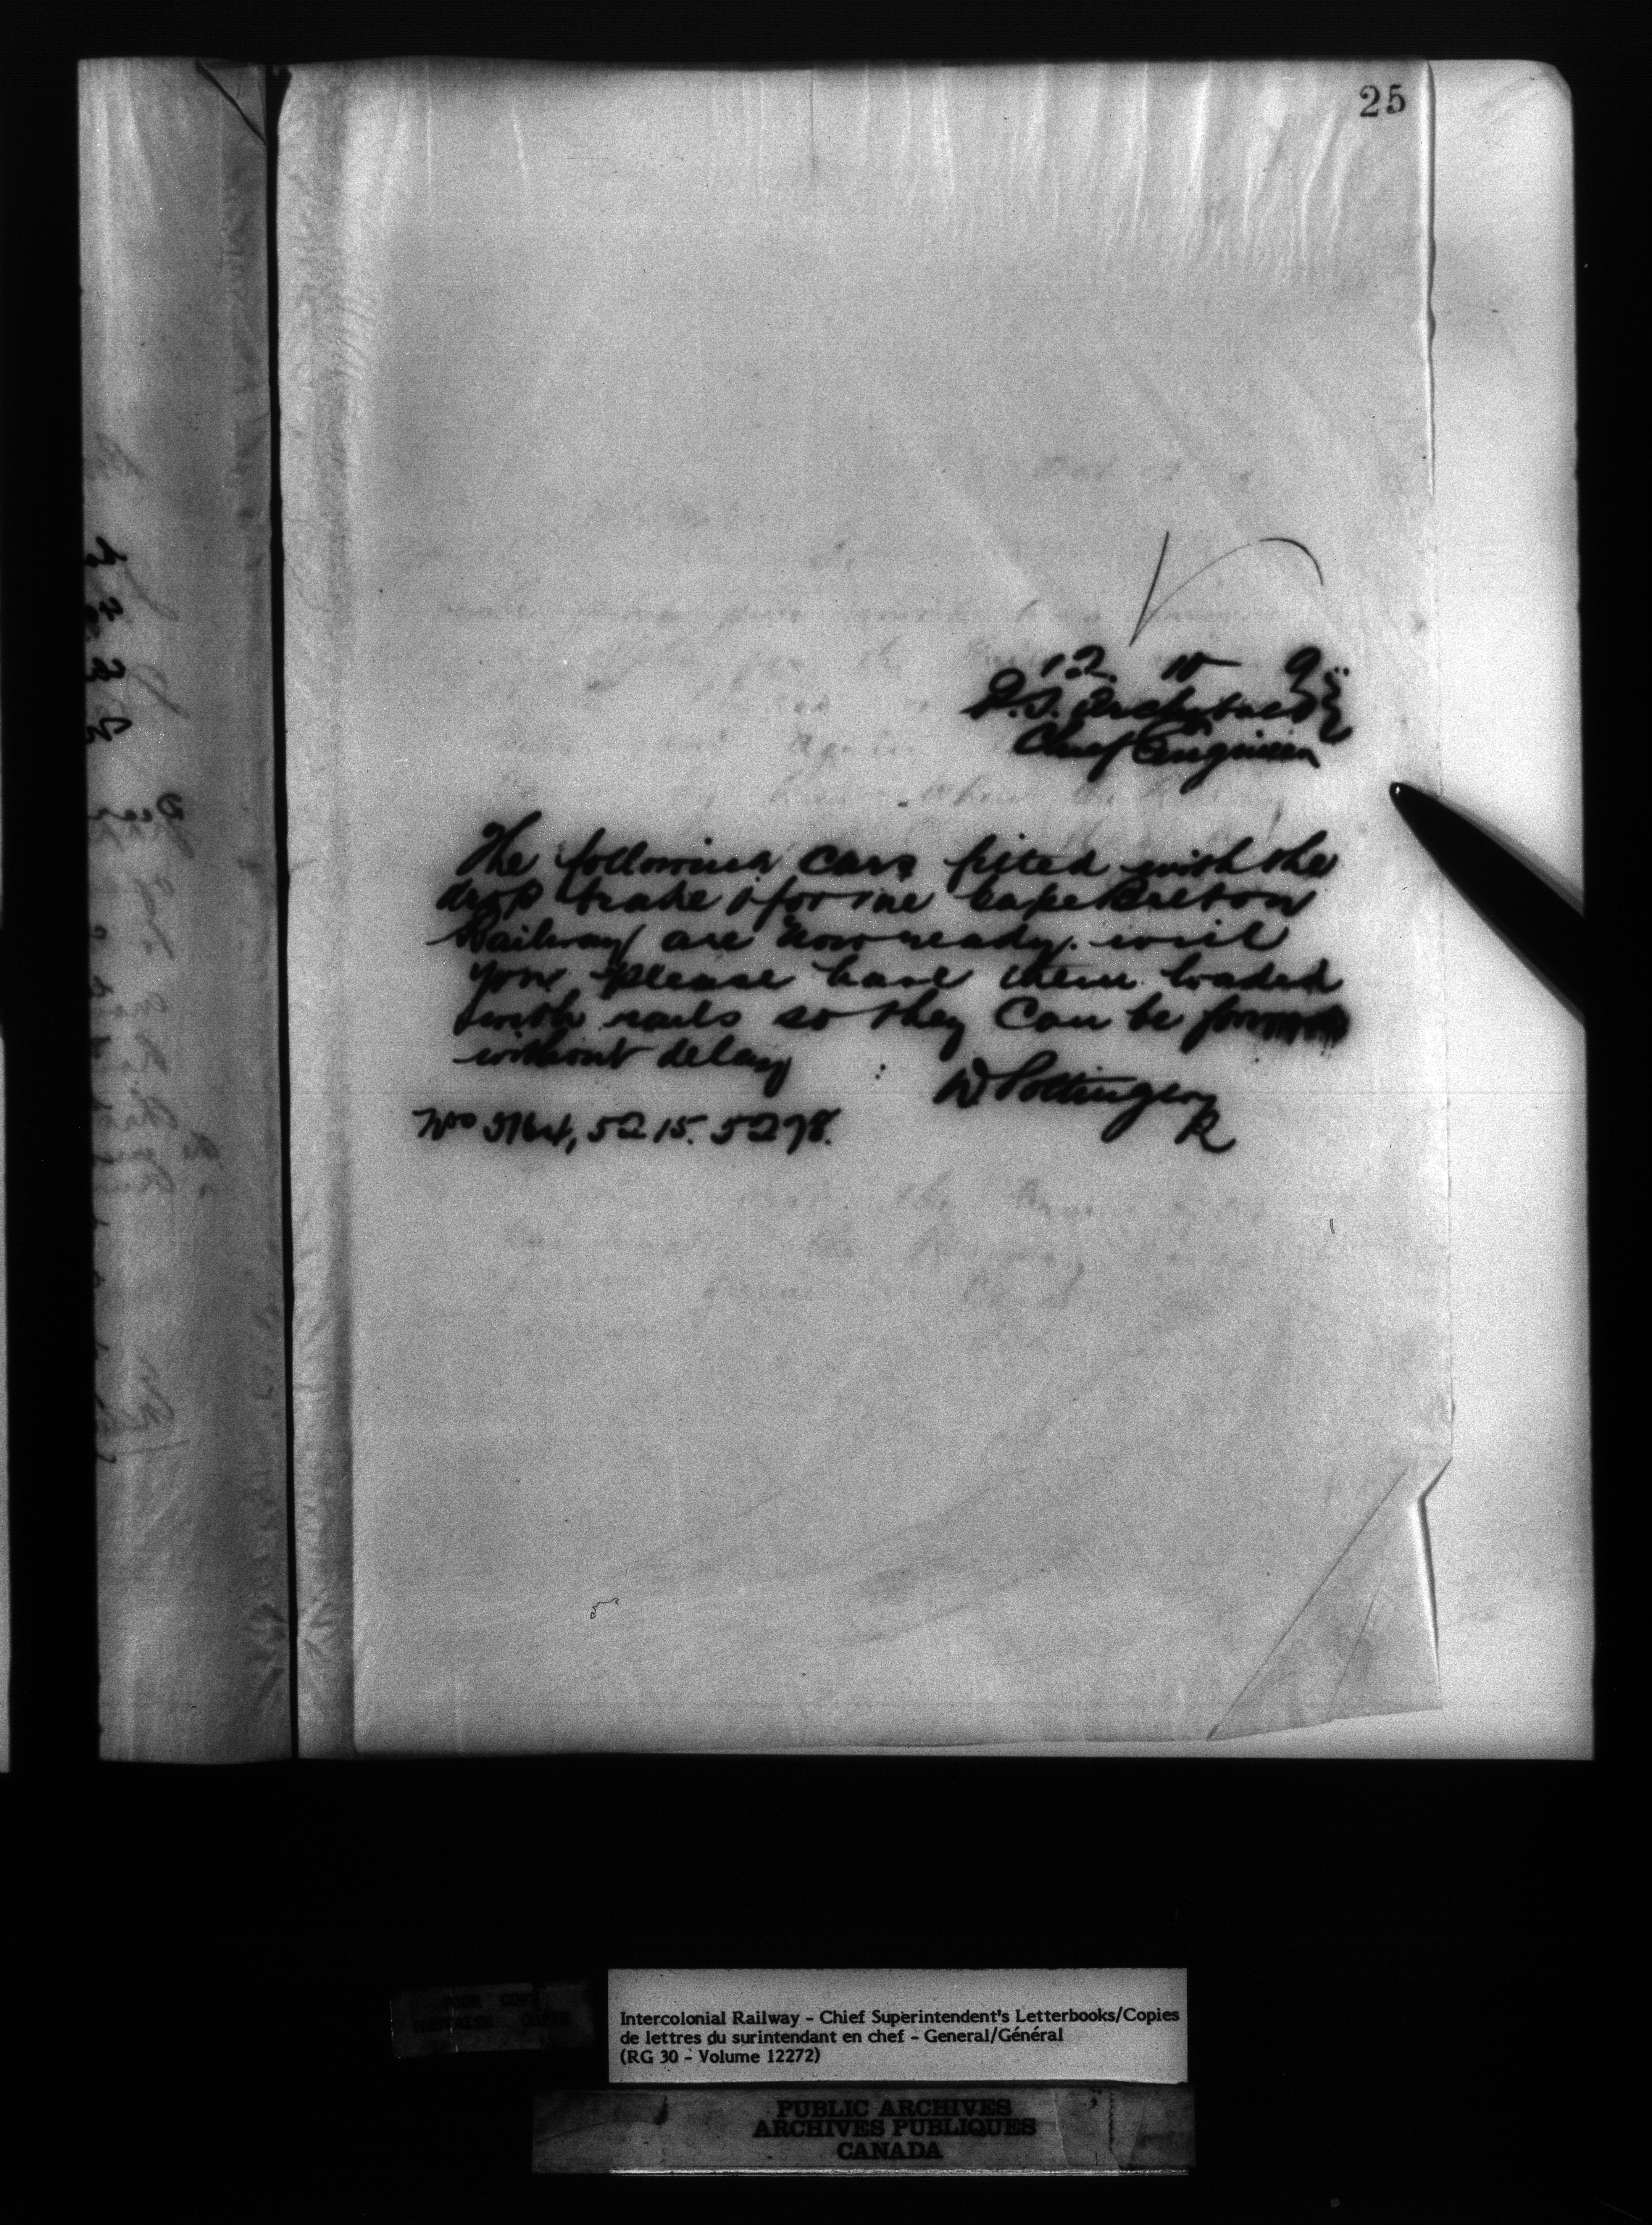 25
12. 10 9
P.S. Archibald
Chief Engineer
The following cars fited with the
drop brake for the Cape Breton
Railway are now ready. will
you please have them loaded
with rails so they can be
without delay
W. Pottinger
R
Nos 5164, 5215. 5278.
Intercolonial Railway - Chief Superintendent's Letterbooks/Copies
de lettres du surintendant en chef - General/Général
(RG 30 - Volume 12272)
PUBLIC ARCHIVES
ARCHIVES PUBLIQUES
CANADA